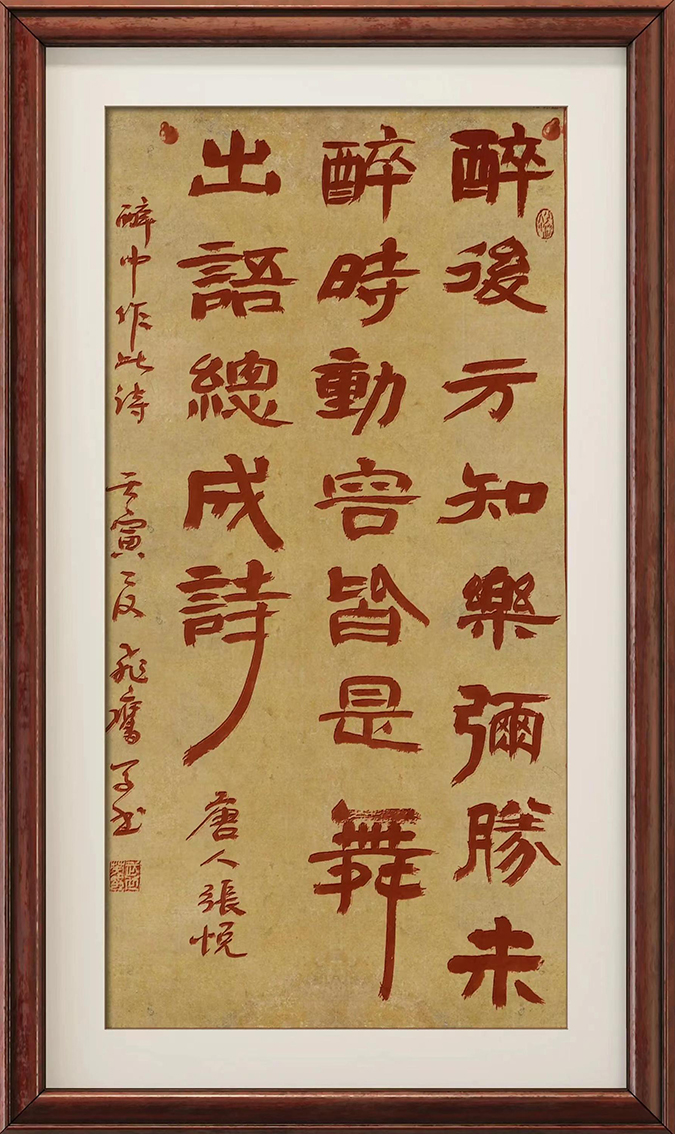 醉後方知樂彌勝未
醉時動容皆是舞
出語總成詩
唐人張悦
醉中作此詩 壬寅